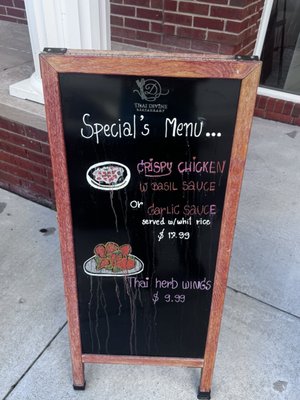 D
THAI DIVINE
RESTAURANT
Special's Menu...
CRISPY CHICKEN
W BASIL SAUCE
Or
Garlic SAUCE
served w/whit rice
$ 17.99
Thai herb WING'S
$ 9.99